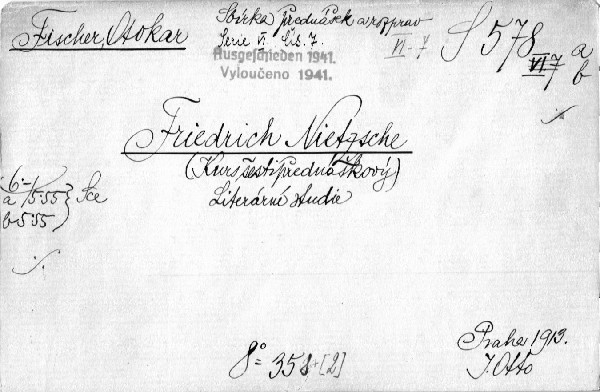 Fischer, Otokar
Sbírka přednášek a rozprav
Serie VI. čís. 7.
VI-7
S 578
VI 7
a
b
Ausgeschieden 1941.
Vyloučeno 1941.
Friedrich Nietzsche
(Kurs šestipřednáškový)
Literární studie
a 1555
b 555
8° 358+[2]
Praha 1913.
J. Otto